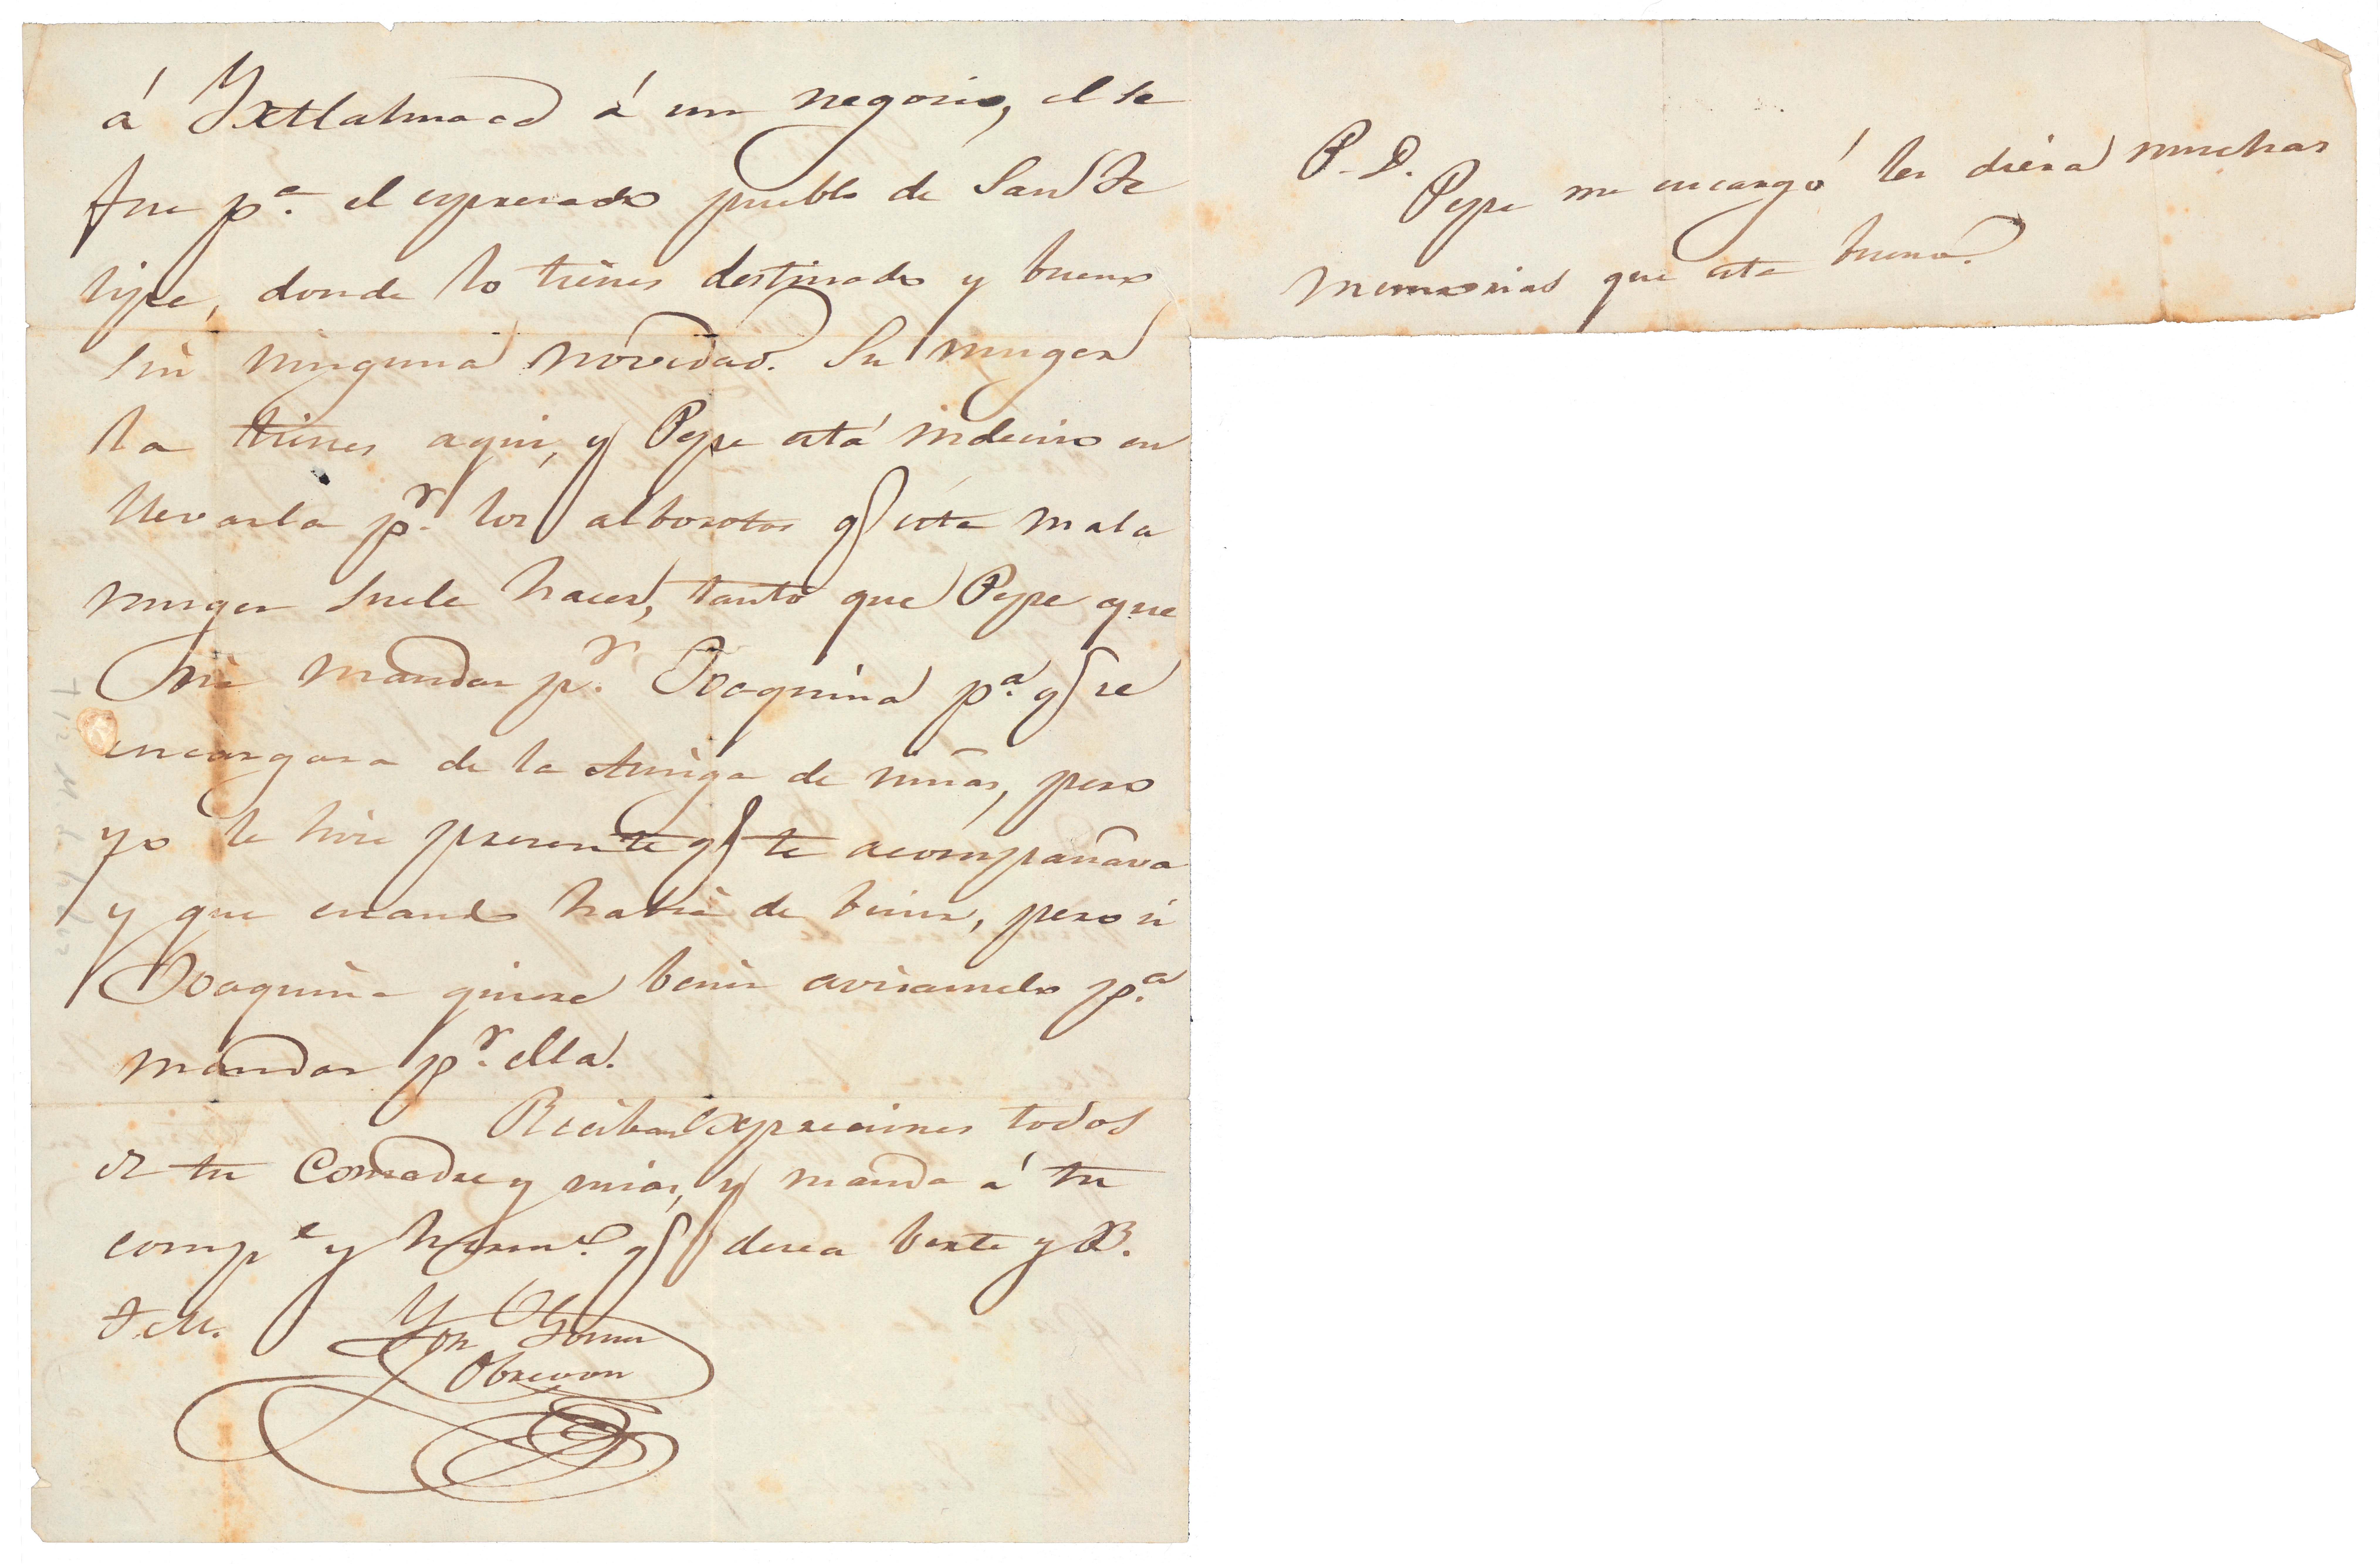 á Yxtlahuaca á un negocio, el se
fue pª. el espresado pueblo de San Fe
lipe, donde lo tienes destinado y bueno
sin ninguna novedad. Su muger
la tienes aqui, y Pepe está indeciso en
llevarla pr. los alborotos q esta mala
muger suele hacer, tanto que Pepe que
ria mandar pr. Joaquina pª. q se
encargara de la Amiga de niñas, pero
yo le hice presente q te acompañava
y que cuando habia de benir, pero si
Joaquina quiere benir avisamelo pª.
mandar pr. ella.
Reciban Expreciones todos
de tu Comadre y mias, y manda á tu
compe y hermo. q desea berte y B.
T. M.
Obregon
P. D.
Pepe me encargó les diera muchas
memorias que esta bueno.